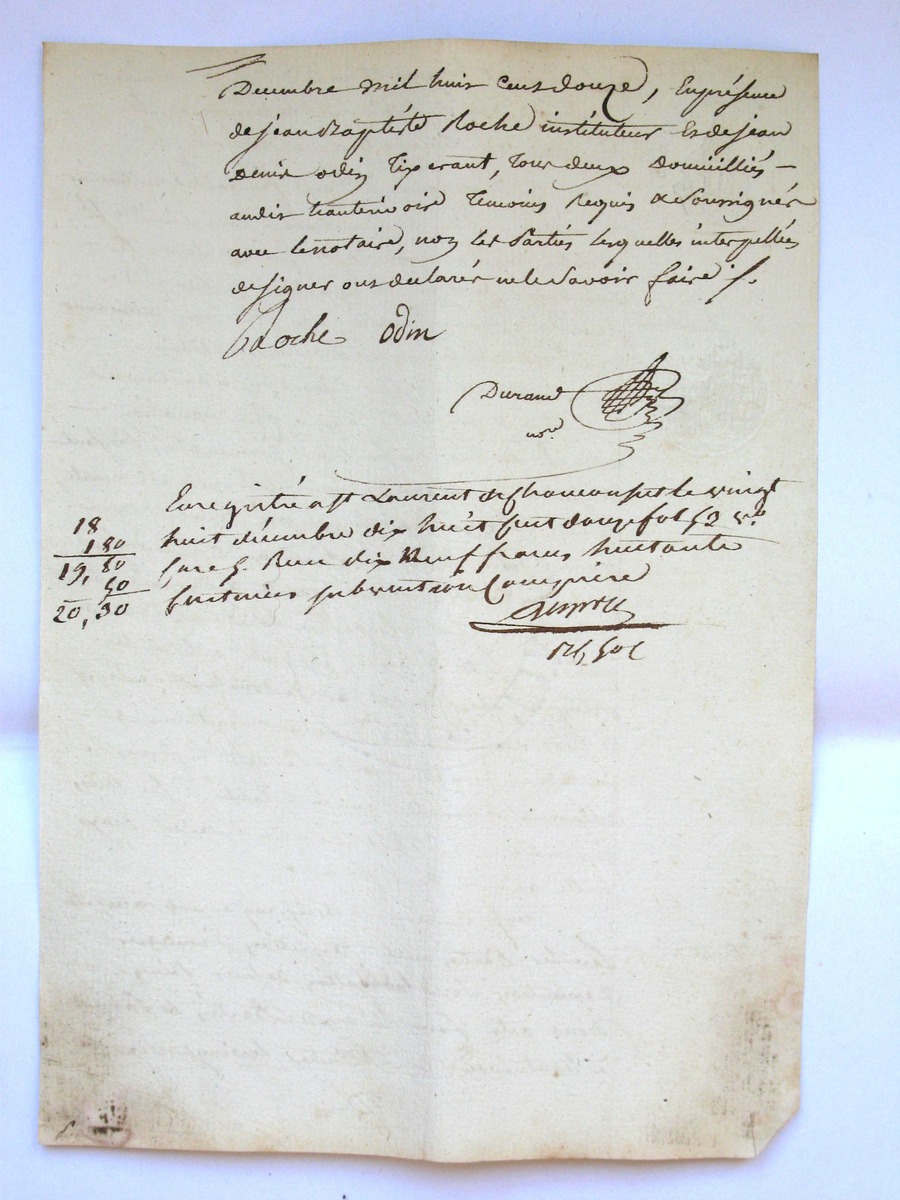 Decembre mil huit cent douze, En présence
de jean Baptiste Roche instituteur Et de jean
denis odin Tixerant, tous deux Domiciliés -
audit hauterivoire Temoins Requis & Soussignés
avec le notaire, non les Parties lesquelles interpellées
de signer ont declarés ne le Savoir faire /.
Roche odin
Durand
nore
Enregistré a St Laurent de Chamousset le vingt
huit décembre dix huit cent douze fol 52 vo
Case 5. Reçu dix Neuf francs huitante
centimes subvention Comprise
18
1 80
19, 80
50
20, 30